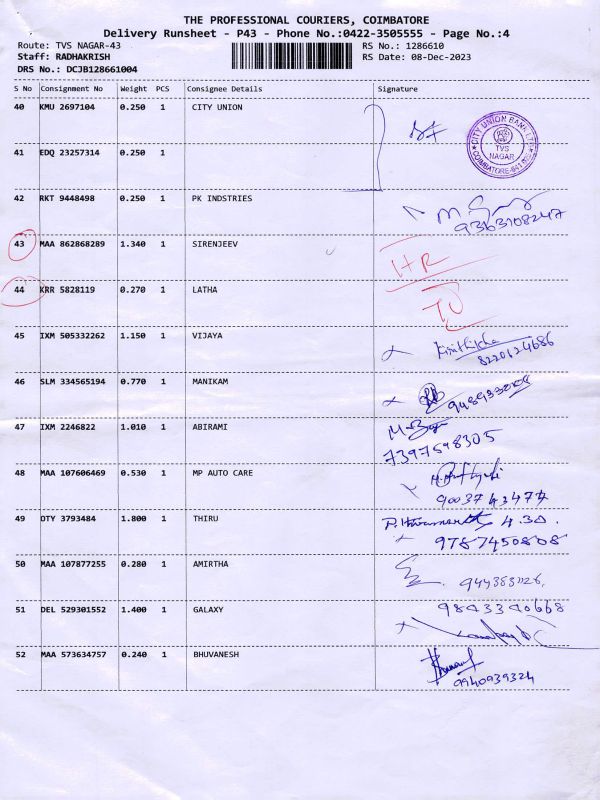 THE PROFESSIONAL COURIERS, COIMBATORE
Delivery Runsheet - P43 - Phone No.:0422-3505555 - Page No.:4
Route: TVS NAGAR-43 RS No.: 1286610
Staff: RADHAKRISH RS Date: 08-Dec-2023
DRS No.: DCJB128661004
S No Consignment No Weight PCS Consignee Details Signature
40 KMU 2697104 0.250 1 CITY UNION
CITY UNION BANK LTD
TVS
NAGAR
COIMBATORE-641
41 EDQ 23257314 0.250 1
42 RKT 9448498 0.250 1 PK INDSTRIES
9363108247
43 MAA 862868289 1.340 1 SIRENJEEV
44 KRR 5828119 0.270 1 LATHA
45 IXM 505332262 1.150 1 VIJAYA
8220124686
46 SLM 334565194 0.770 1 MANIKAM
47 IXM 2246822 1.010 1 ABIRAMI
7397598305
48 MAA 107606469 0.530 1 MP AUTO CARE
9003743477
49 OTY 3793484 1.800 1 THIRU
4.30.
9787450808
50 MAA 107877255 0.280 1 AMIRTHA
51 DEL 529301552 1.400 1 GALAXY
9843340668
52 MAA 573634757 0.240 1 BHUVANESH
9940939324